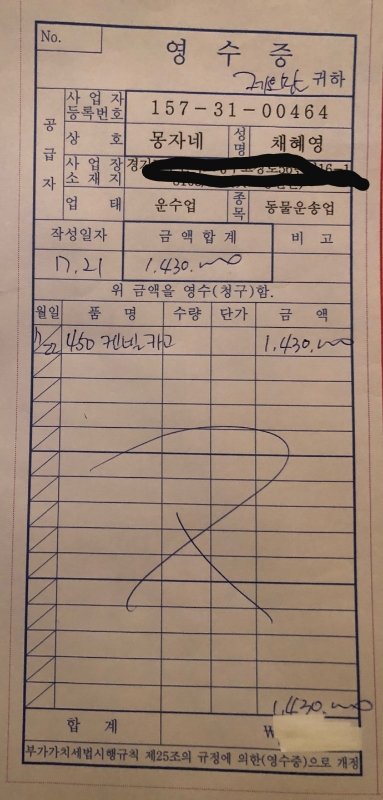 No.
영 수 증
귀하
공급자
사업자등록번호 157-31-00464
상호 몽자네 성명 채혜영
사업장소재지 경기
업태 운수업 종목 동물운송업
작성일자 금액합계 비고
17.21 1.430.000
위 금액을 영수(청구)함.
월일 품명 수량 단가 금액
450 켄넬 카고 1.430.000
1.430.000
합계 ₩
부가가치세법시행규칙 제25조의 규정에 의한(영수증)으로 개정